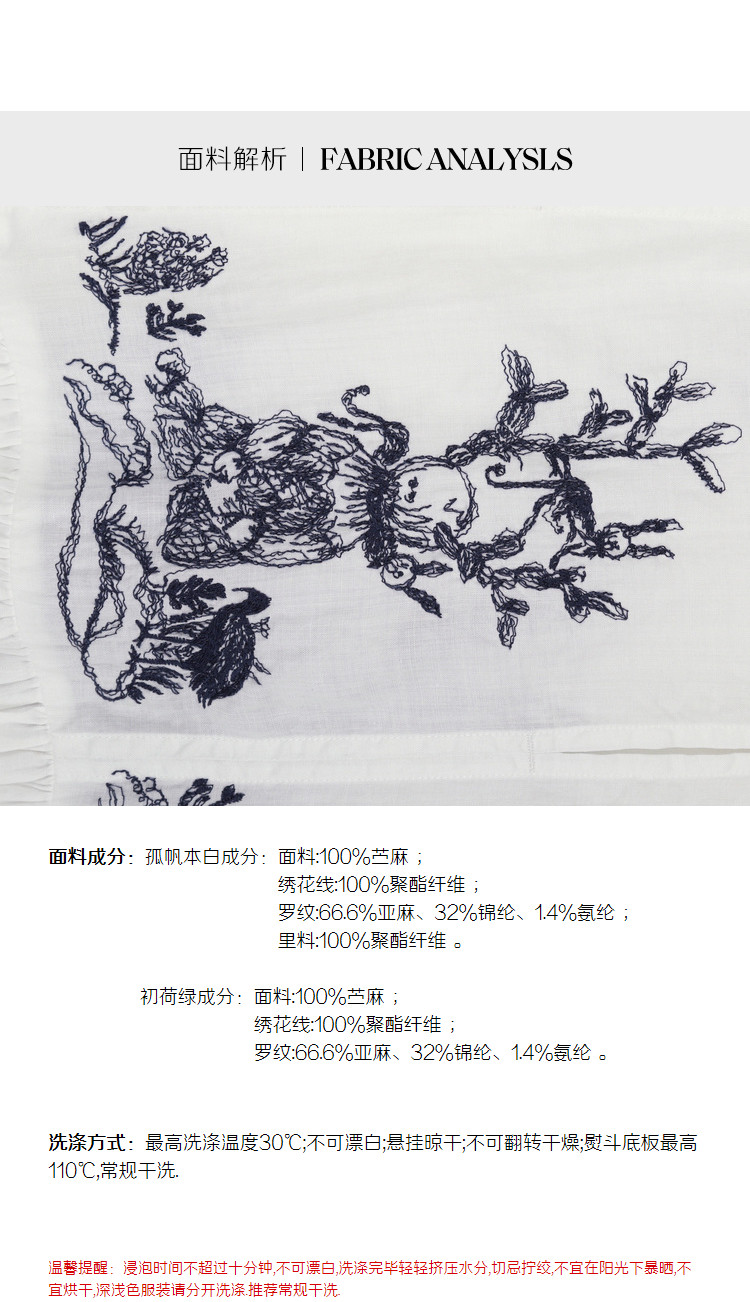 面料解析 | FABRIC ANALYSLS
面料成分：孤帆本白成分：面料:100%苎麻；
绣花线:100%聚酯纤维；
罗纹:66.6%亚麻、32%锦纶、1.4%氨纶；
里料:100%聚酯纤维。
初荷绿成分：面料:100%苎麻；
绣花线:100%聚酯纤维；
罗纹:66.6%亚麻、32%锦纶、1.4%氨纶。
洗涤方式：最高洗涤温度30℃;不可漂白;悬挂晾干;不可翻转干燥;熨斗底板最高
110℃,常规干洗.
温馨提醒：浸泡时间不超过十分钟,不可漂白,洗涤完毕轻轻挤压水分,切忌拧绞,不宜在阳光下暴晒,不
宜烘干,深浅色服装请分开洗涤.推荐常规干洗.